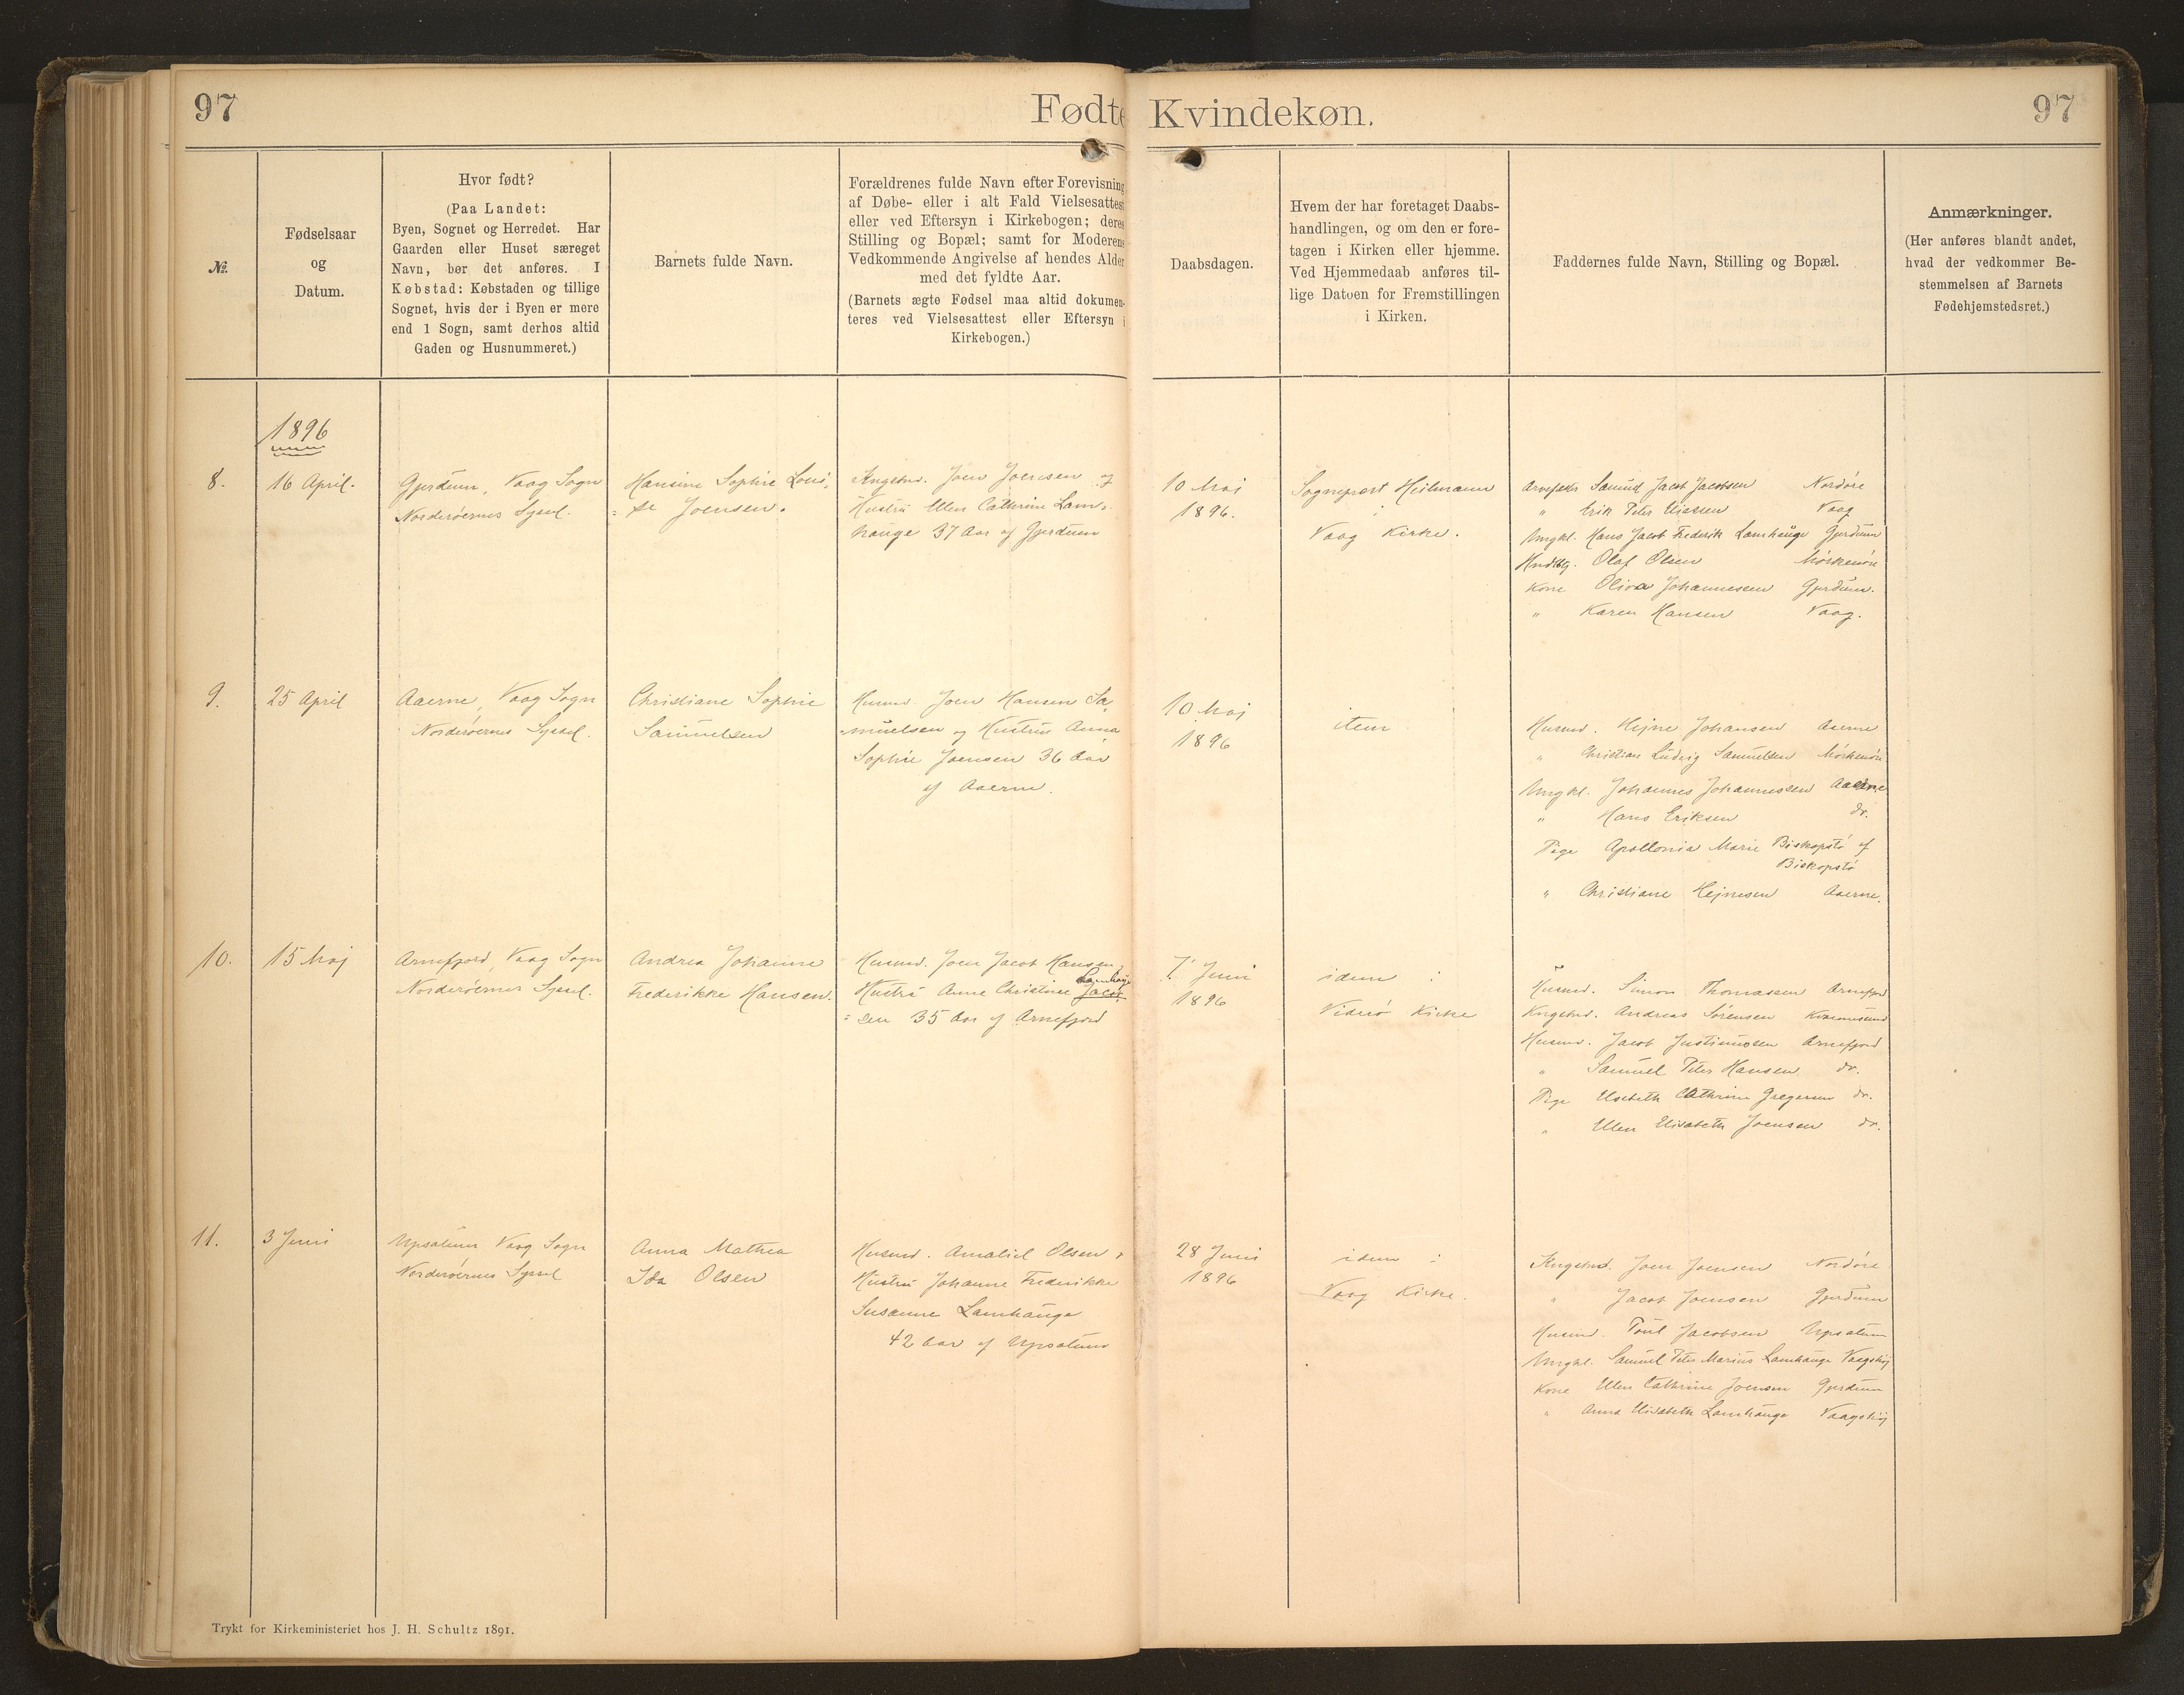 97
Fødte
Kvindekøn.
97
№.
Fødselsaar
og
Datum.
Hvor født?
(Paa Landet:
Byen, Sognet og Herredet. Har
Gaarden eller Huset særeget
Navn, bør det anføres. I
Købstad: Købstaden og tillige
Sognet, hvis der i Byen er mere
end 1 Sogn, samt derhos altid
Gaden og Husnummeret.)
Barnets fulde Navn.
Forældrenes fulde Navn efter Forevisning
af Døbe- eller i alt Fald Vielsesattest
eller ved Eftersyn i Kirkebogen; deres
Stilling og Bopæl; samt for Moderens
Vedkommende Angivelse af hendes Alder
med det fyldte Aar.
(Barnets ægte Fødsel maa altid dokumen-
teres ved Vielsesattest eller Eftersyn i
Kirkebogen.)
Daabsdagen.
Hvem der har foretaget Daabs-
handlingen, og om den er fore-
tagen i Kirken eller hjemme.
Ved Hjemmedaab anføres til-
lige Datoen for Fremstillingen
i Kirken.
Faddernes fulde Navn, Stilling og Bopæl.
Anmærkninger.
(Her anføres blandt andet,
hvad der vedkommer Be-
stemmelsen af Barnets
Fødehjemstedsret.)
1896
8.
16 April.
Gjerdum, Vaag Sogn
Norderöernes Syssel.
Hansine Sophie Loui-
se Joensen.
Kngsbnd. Joen Joensen og
Hustru Ellen Cathrine Lam-
hauge 37 Aar af Gjerdum
10 Maj
1896.
Sognepræst Heilmann
i
Vaag Kirke.
Samuel Jacob Jacobsen Nordöre
" Erik Peter Eliassen Vaag
Ungkl. Hans Jacob Frederik Lamhauge Gjerdum
Olaf Olsen Mörkenöre
Kone Oliva Johannessen Gjerdum.
" Karen Hansen Vaag.
9.
25 April
Aaerne, Vaag Sogn
Norderöernes Syssel.
Christiane Sophie
Samuelsen
Husmd. Joen Hansen Sa-
muelsen og Hustru Anna
Sophie Joensen 36 Aar
af Aaerne.
10 Maj
1896
item
Husmd. Hejne Johansen Aaerne
" Christian Ludvig Samuelsen Mörkenöre
Ungkl. Johannes Johannessen Aaerne
" Hans Eriksen do.
Pige Apollonia Marie Biskopstö af
Biskopstö
" Christiane Hejnesen Aaerne.
10.
15 Maj
Arnefjord, Vaag Sogn
Norderöernes Syssel.
Andrea Johanne
Frederikke Hansen.
Husmd. Joen Jacob Hansen,
Lamhauge
Hustru Anne Christine Jacob-
sen 35 Aar af Arnefjord
7. Juni
1896
idem i
Viderö Kirke
Husmd. Simon Thomassen Arnefjord
Kngsbnd. Andreas Sörensen Kvannesund
Husmd. Jacob Justinussen Arnefjord
" Samuel Peter Hansen do.
Pige Elsebeth Cathrine Gregersen do.
" Ellen Elisabeth Joensen do.
11.
3 Juni
Upsalum Vaag Sogn
Norderöernes Syssel
Anna Mathea
Ida Olsen
Husmd. Amaliel Olsen,
Hustru Johanne Frederikke
Susanne Lamhauge
42 Aar af Upsalum
28 Juni
1896
idem i
Vaag Kirke.
Kngsbnd. Joen Joensen Nordöre
" Jacob Joensen Gjerdum
Husmd. Poul Jacobsen Upsalum
Ungkl. Samuel Peter Marius Lamhauge Vaagshøj
Kone Ellen Cathrine Joensen Gjerdum
" Anna Elisabeth Lamhauge Vaagshøj
Trykt for Kirkeministeriet hos J. H. Schultz 1891.